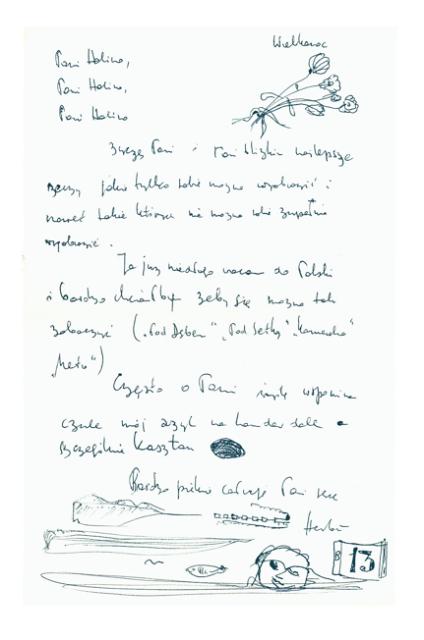 Wielkanoc
Pani Halino,
Pani Halino,
Pani Halino
Życzę Pani i Pani bliskim najlepsze
rzeczy jakie tylko sobie można wyobrazić i
nawet takie których nie można sobie zupełnie
wyobrazić.
Ja już niedługo wracam do Polski
i bardzo chciałbym żeby się można tak
zobaczyć („Pod Dębem" „Pod Setką" „Kameralna"
„Metro")
Często o Pani myślę wspominam
czule mój azyl na
szczególnie kasztan
Bardzo pięknie całuję Pani ręce
Herbert
13